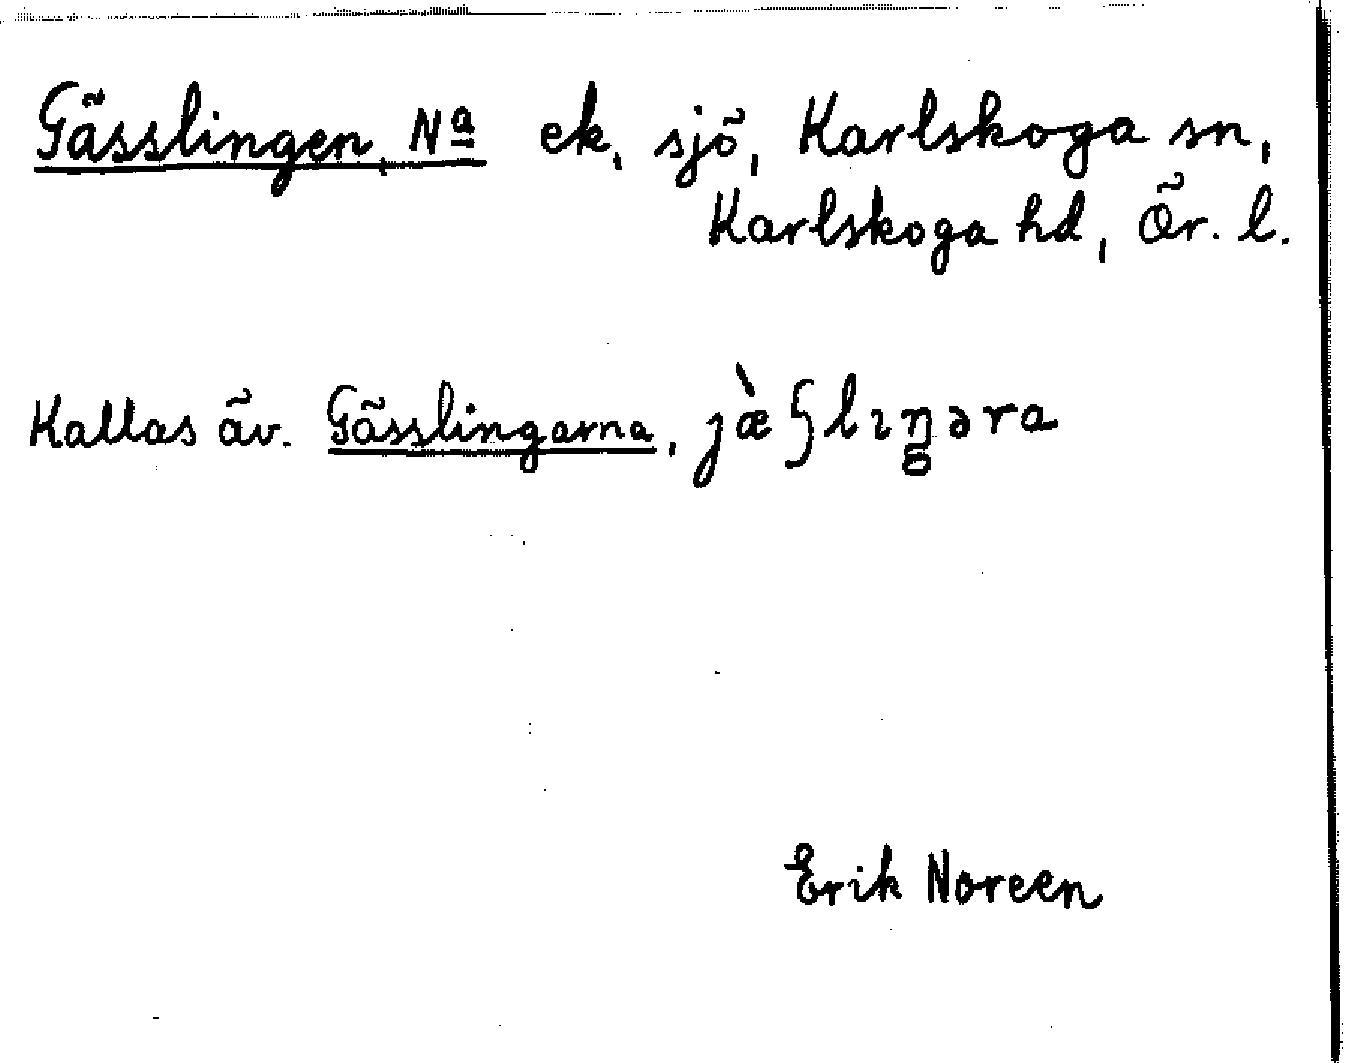 Gässlingen, Nª ek, sjö, Karlskoga sn,
Karlskoga hd, Ör. l.
Kallas äv. Gässlingarna, jæ̀ʃlıŋəra
Erik Noreen